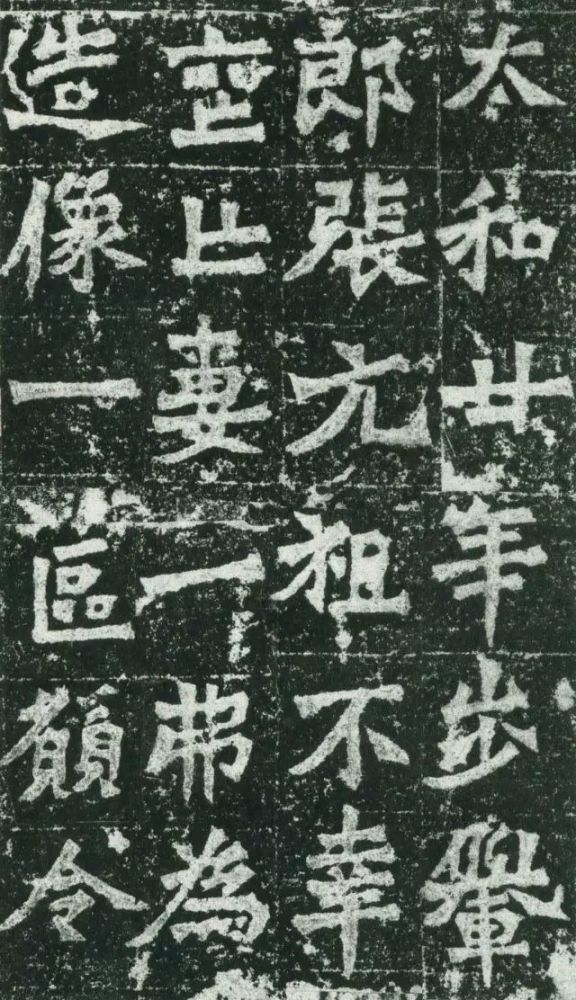 太和廿年步轝
郎張元祖不幸
喪亡妻一弗為
造像一區願令